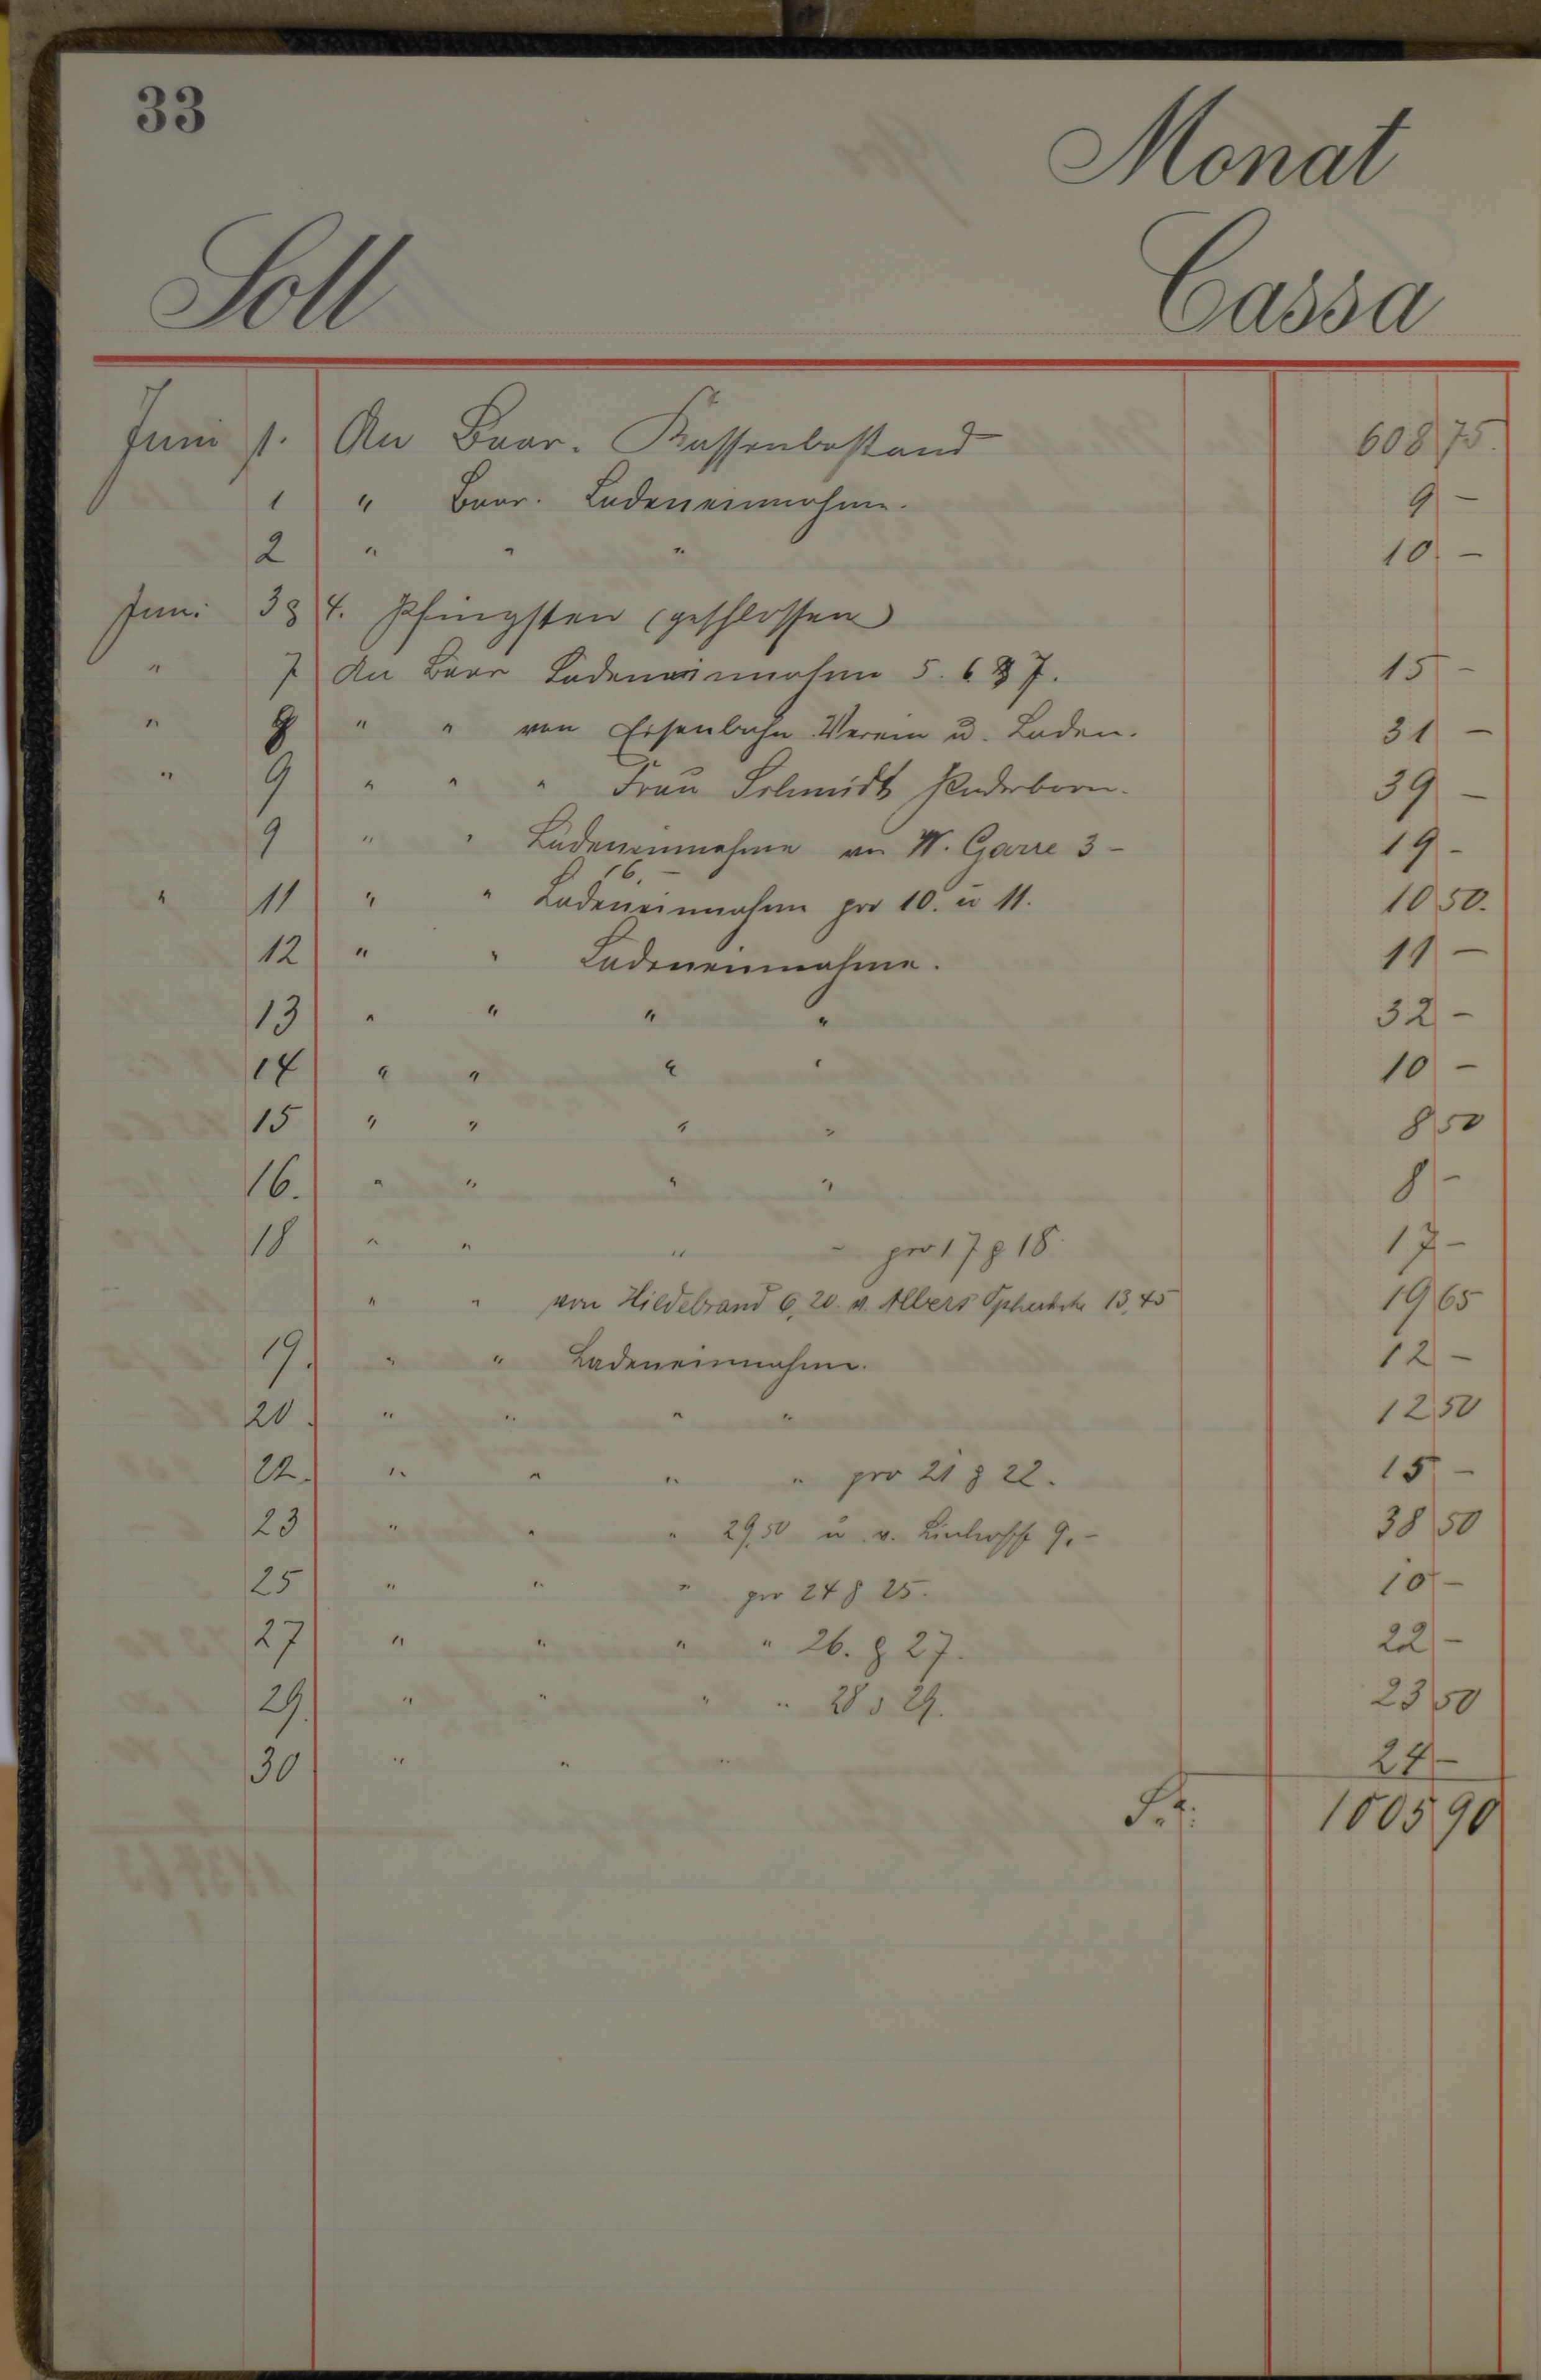 33
Monat
Soll Cassa
Juni 1. An Baar. Kassenbestand 608 75.
1 " Baar. Ladeneinnahme. 9 –
2 " " " 10. –
Juni 3 & 4. Pfingsten (geschlossen)
" 7 An Baar Ladeneinnahme 5. 6 & 7. 15 –
" 8 " " von Eisenbahn Verein u. Laden. 31 –
" 9 " " " Frau Schmidt Paderborn. 39 –
9 " " Ladeneinnahme W. Garre 3 – 19 –
16. –
" 11 " " Ladeneinnahme pro 10. u 11. 10 50.
12 " " Ladeneinnahme. 11 –
13 " " " " 32 –
14 " " " " 10 –
15 " " " " 8 50
16. " " " " 8 –
18 " " " " pro 17 & 18 17 –
" " von Hildebrand 6,20. v. Albers 13,45 19 65
19. " " Ladeneinnahme. 12 –
20. " " " " 12 50
22. " " " " pro 21 & 22. 15 –
23 " " " 29,50 u. v. 9.– 38 50
25 " " " pro 24 & 25. 10 –
27 " " " " 26. & 27. 22 –
29. " " " " 28 & 29. 23 50
30 " " " 24 –
1005 90